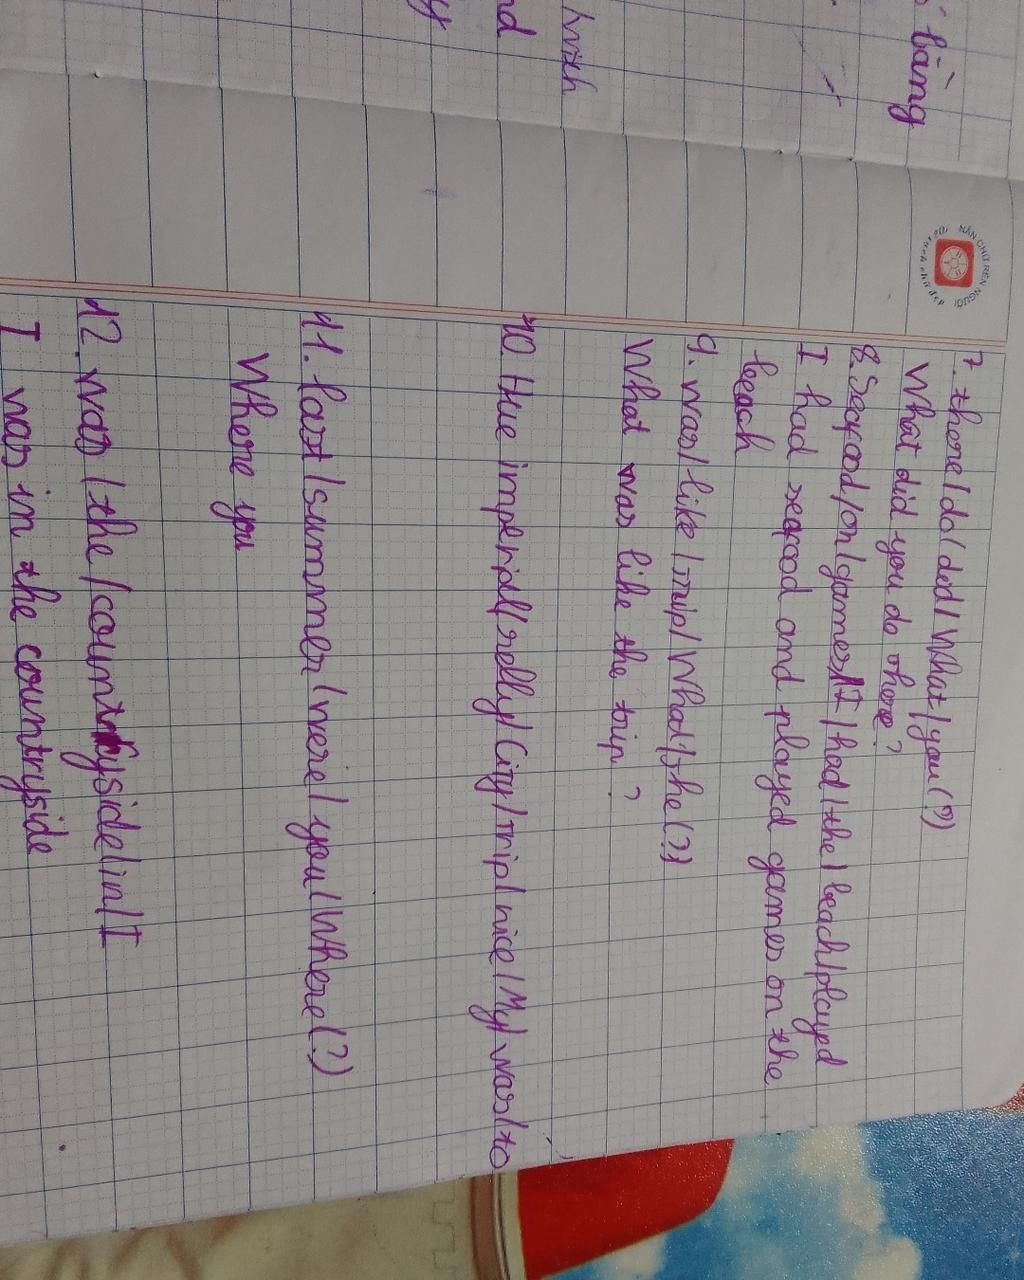 bằng
with
nd
y
NÂN CHỮ RÈN NGƯỜI
7. there/do/did/What/you(?)
What did you do there?
8. Seafood/on/games/I/had/the/beach/played
I had seafood and played games on the
beach
9. was/like/trip/What/the(?)
What was like the trip?
10. Hue imperial/relly/City/trip/nice/My/was/to
11. last/summer/were/you/Where(?)
Where you
12. was/the/countryside/in/I
I was in the countryside